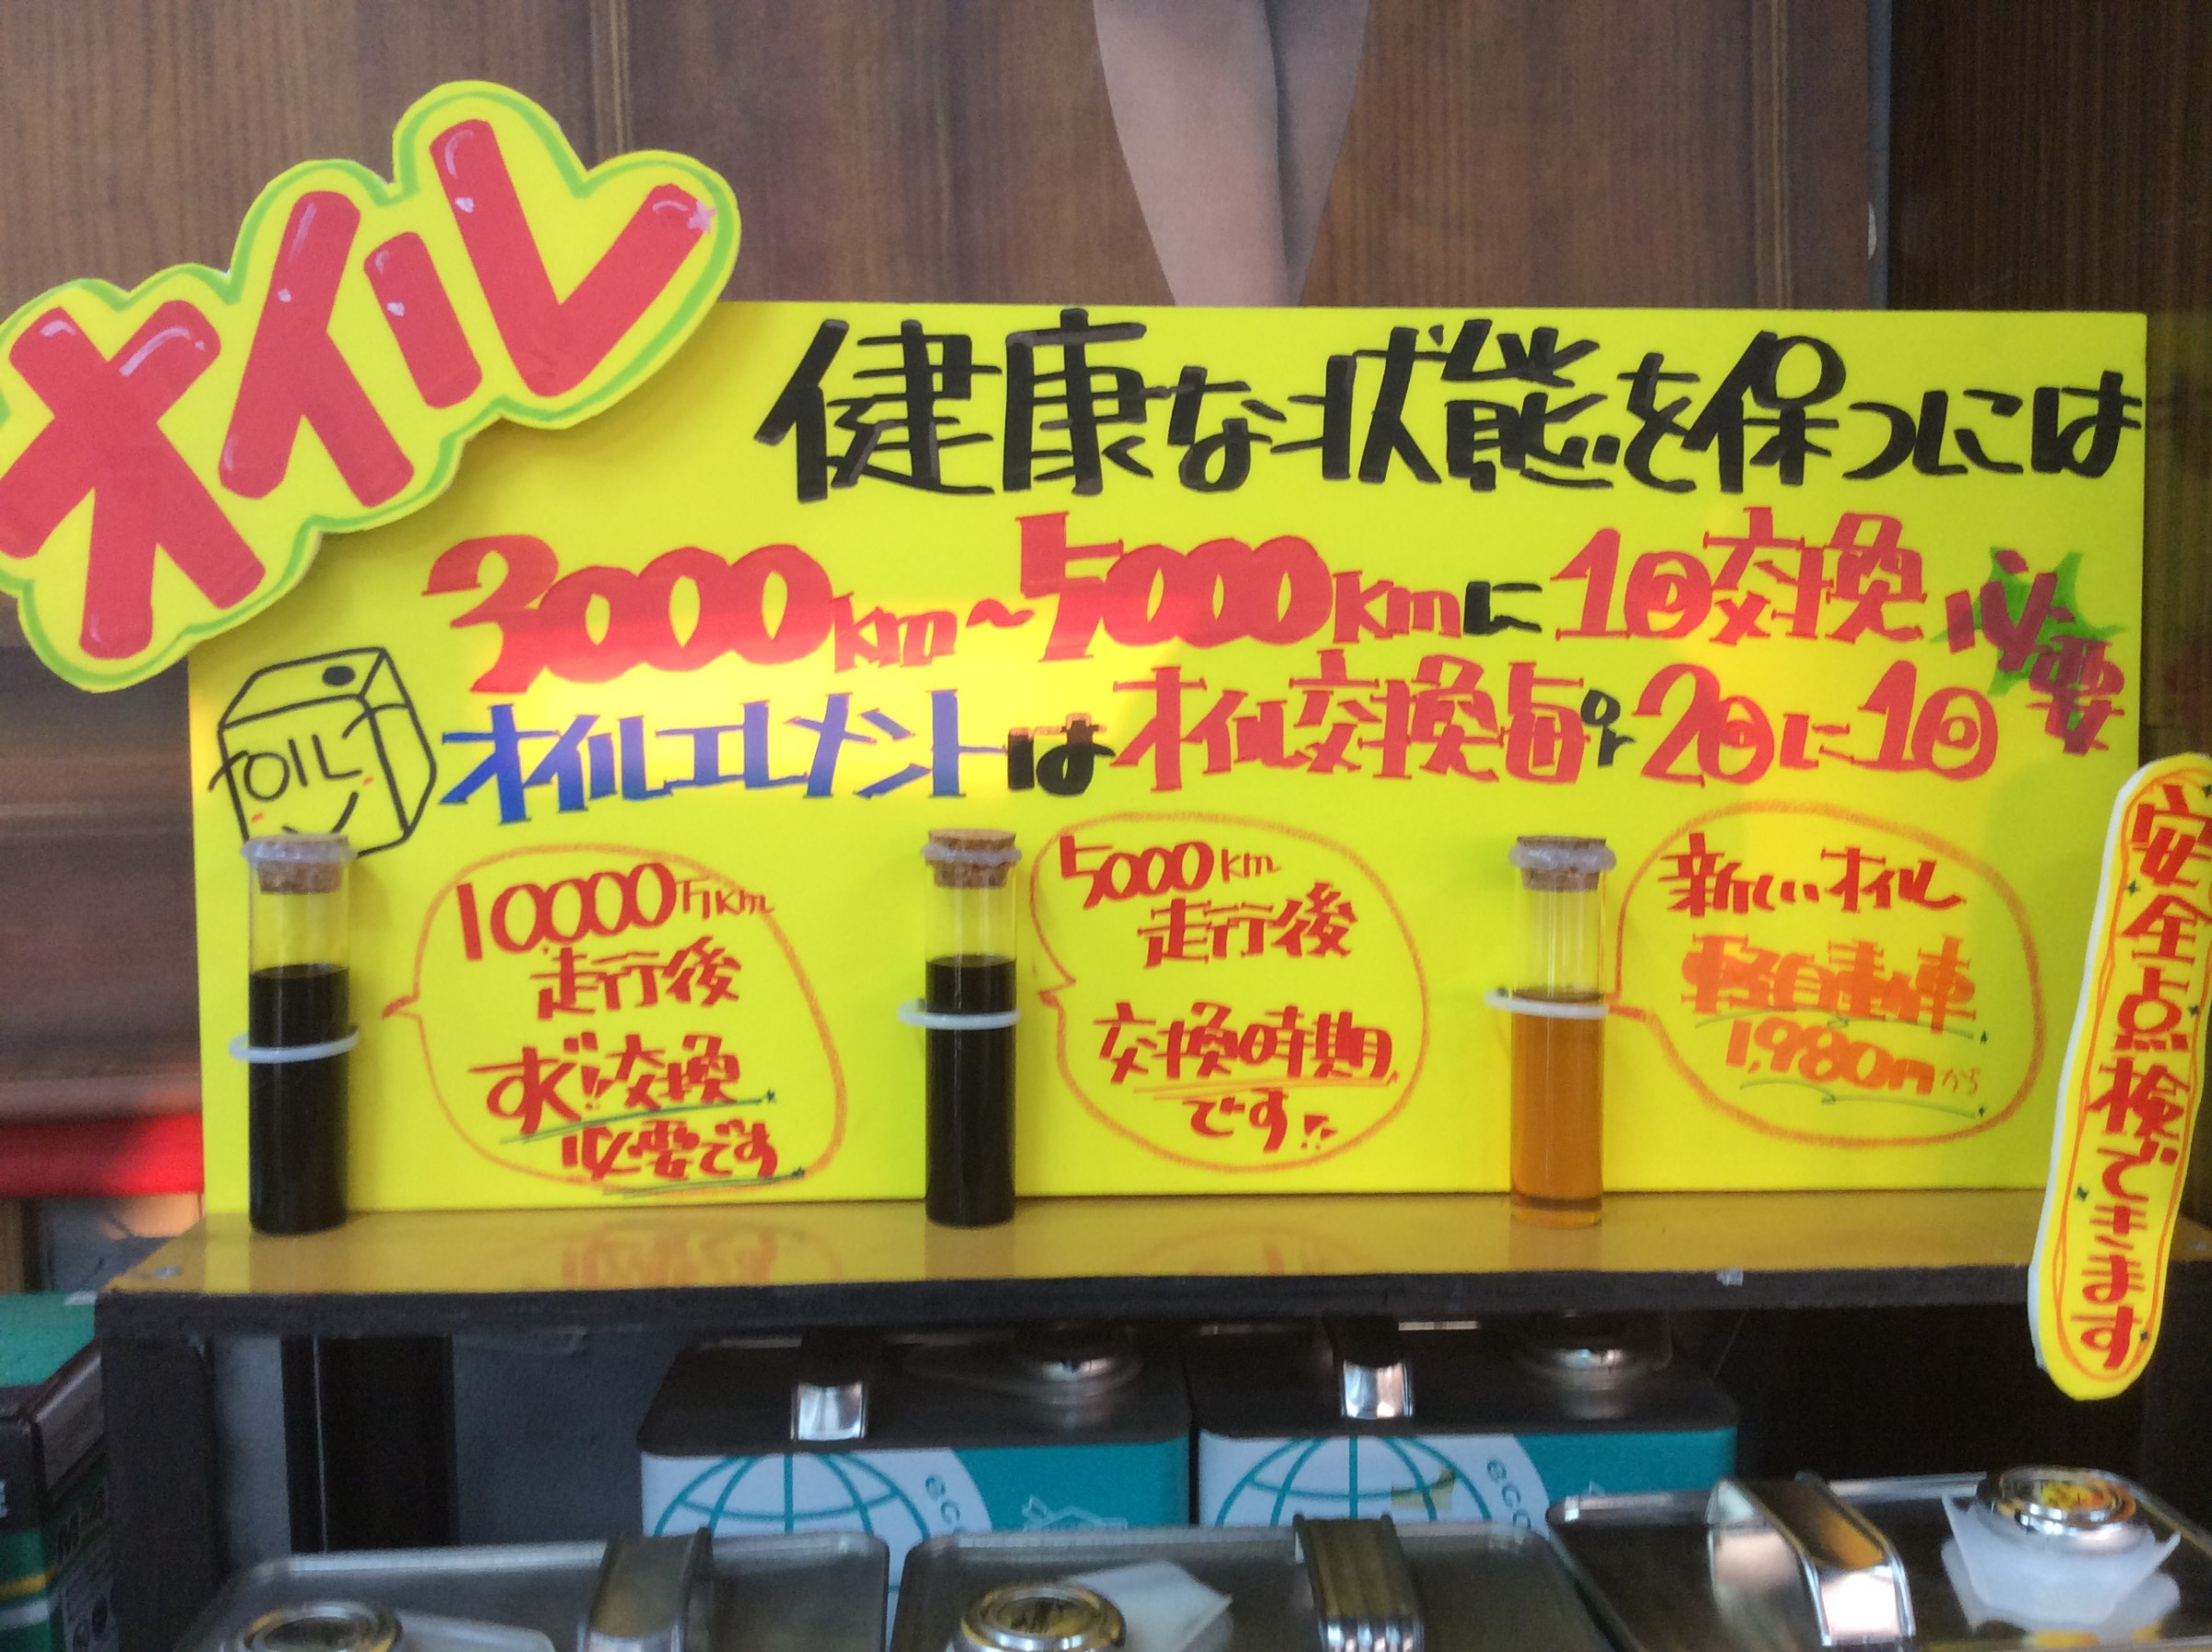 オイル
健康な状態を保つには
3000km～5000kmに1回交換必要
オイルエレメントはオイル交換毎or2回に1回
OIL
10000km
走行後
すぐ!!交換
必要です
5000km
走行後
交換時期
です!!
新しいオイル
軽自動車
1,980円から
安全点検できます
eco
eco